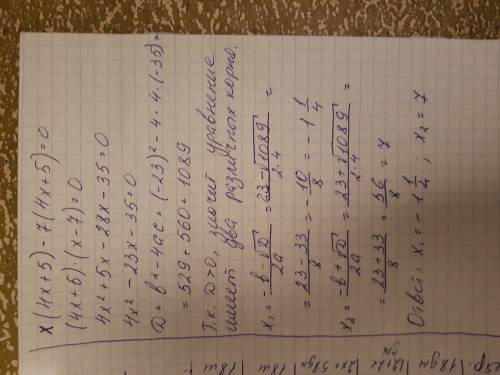 x(4x+5)-7(4x+5)=0
(4x+5)·(x-7)=0
4x²+5x-28x-35=0
4x²-23x-35=0
D=b²-4ac=(-23)²-4·4·(-35)=
=529+560=1089
Т.к. D>0, значит уравнение
имеет два различных корня.
x₁=(-b-√D)/2a=(23-√1089)/2·4=
=(23-33)/8=-10/8=-1 1/4
x₂=(-b+√D)/2a=(23+√1089)/2·4=
=(23+33)/8=56/8=7
Ответ: x₁=-1 1/4; x₂=7